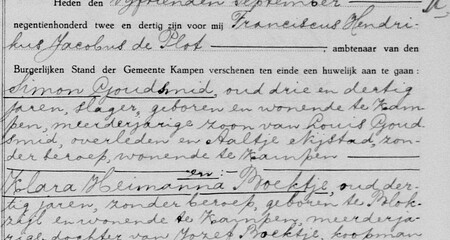 Heden den vijftienden September
negentienhonderd twee en dertig zijn voor mij Franciscus Hendri-
kus Jacobus de Plot ambtenaar van den
Burgerlijken Stand der Gemeente Kampen verschenen ten einde een huwelijk aan te gaan:
Simon Goudsmid, oud drie en dertig
jaren, slager, geboren en wonende te Kam-
pen, meerderjarige zoon van Louis Goud-
smid, overleden en Aaltje Nijstad, zon-
der beroep, wonende te Kampen
en:
Klara Heimanna Boektje, oud der-
tig jaren, zonder beroep, geboren te Blok-
zijl en wonende te Kampen, meerderja-
rige dochter van Jozef Boektje, koopman